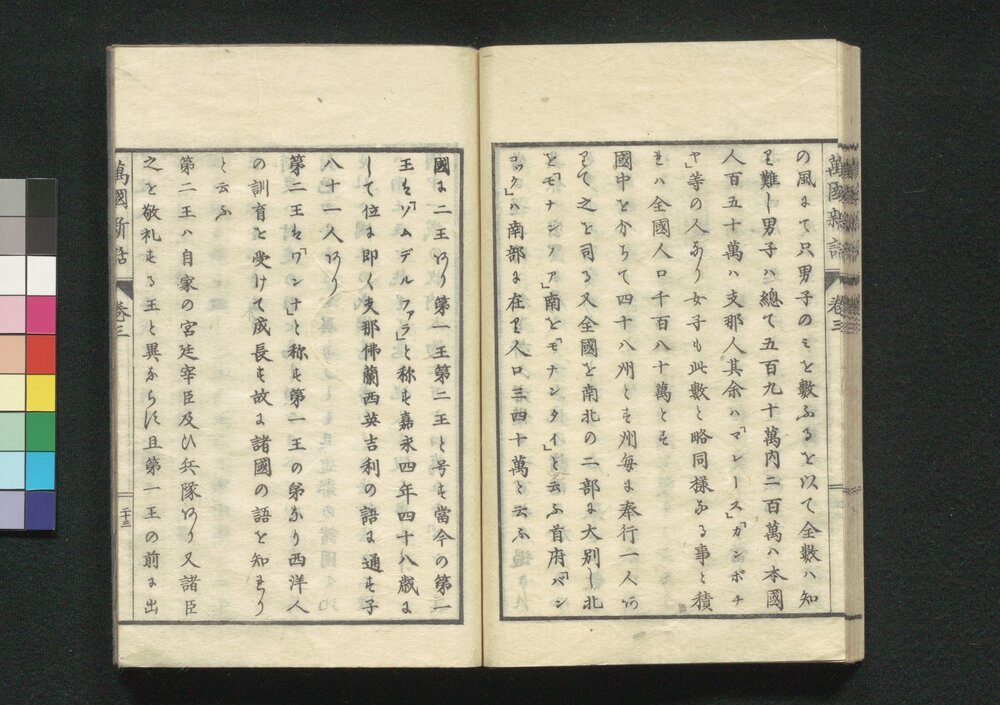 萬國新話
卷三
の風にて只男子のミを數ふるを以て全數ハ知
り難し男子ハ總て五百九十萬内二百萬ハ本國
人百五十萬ハ支那人其余ハ「マレース」「カンボチ
ヤ」等の人あり女子も此數と略同樣なる事と積
れハ全國人口千百八十萬とす
國中を分ちて四十八州とす州毎に奉行一人あり
て之を司る又全國を南北の二部に大別し北
を「モナンノア」南を「モナンタイ」と云ふ首府「バン
コック」ハ南部に在り人口三四十萬と云ふ
國に二王あり第一王第二王と号す當今の第一
王を「ソムデルファラ」と称す嘉永四年四十八歳に
して位に即く支那佛蘭西英吉利の語に通す子
八十一人あり
第二王を「ワンナ」と称す第一王の弟なり西洋人
の訓育を受けて成長す故に諸國の語を知れり
と云ふ
第二王ハ自家の宮廷宰臣及ひ兵隊あり又諸臣
之を敬礼する王と異ならす且第一王の前に出
萬國新話
卷三
二十三